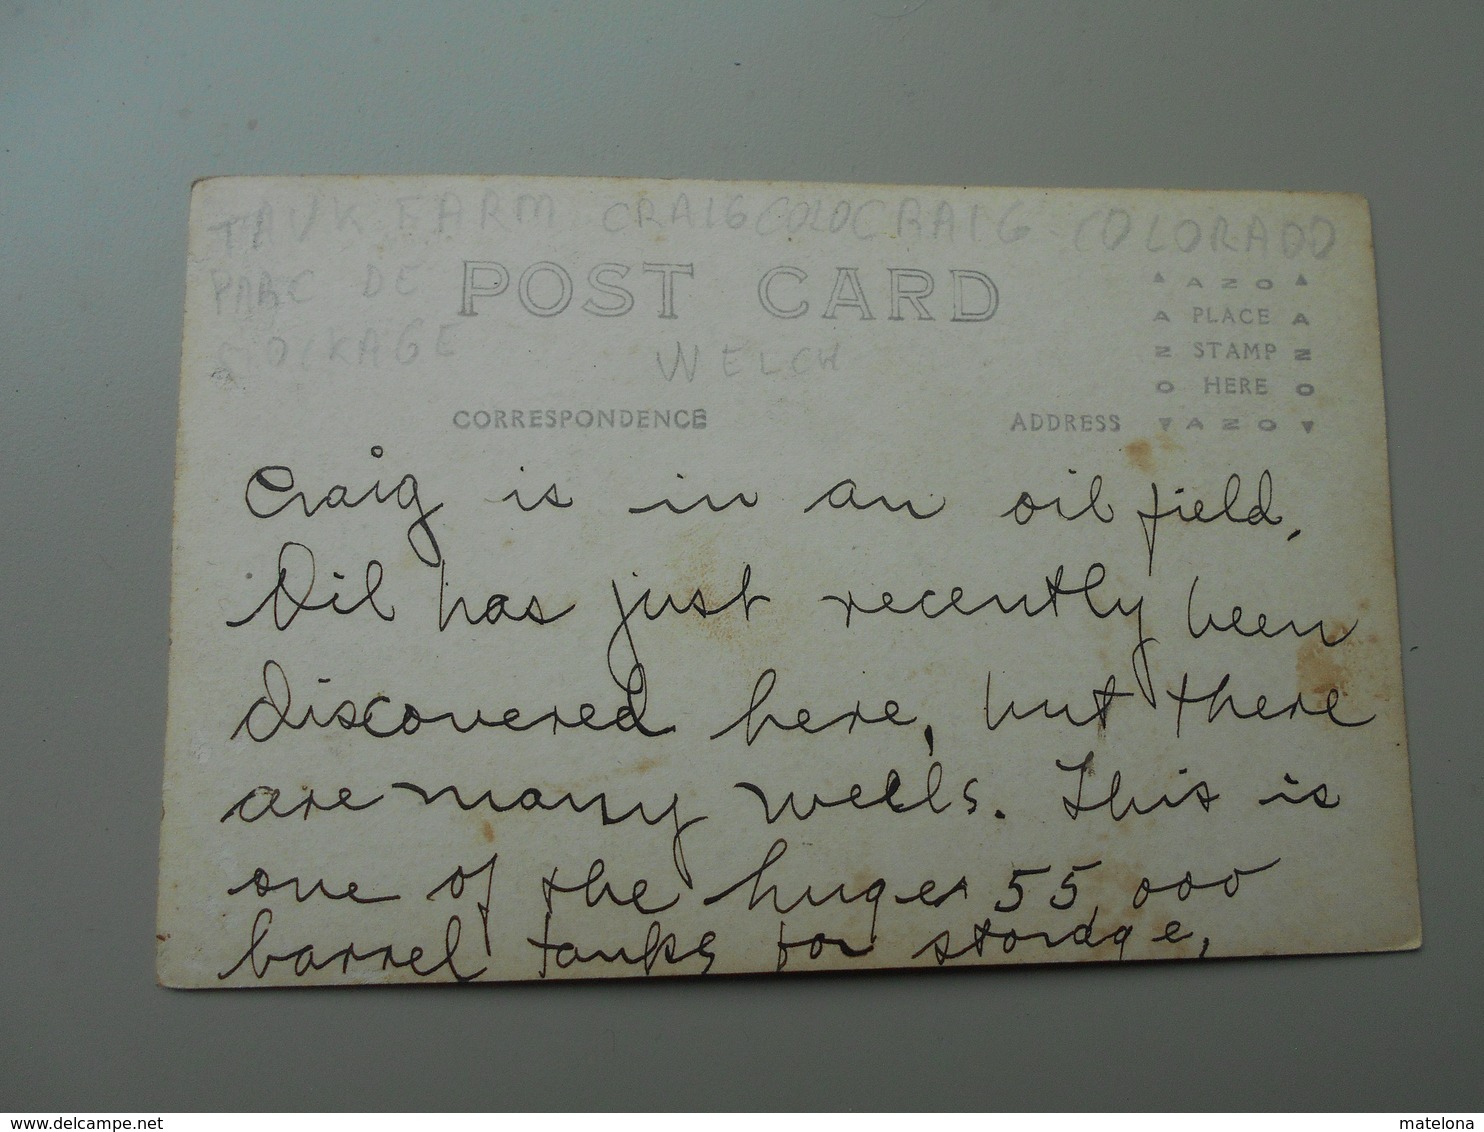 TAUK FARM CRAIG COLO CRAIG COLORADO
PARC DE
STOCKAGE
WELCH
POST CARD
AZO
A PLACE A
N STAMP N
O HERE O
AZO
CORRESPONDENCE
ADDRESS
Craig is in an oil field.
Oil has just recently been
discovered here, but there
are many wells. This is
one of the huge 55,000
barrel tanks for storage.
www.delcampe.net
matelona